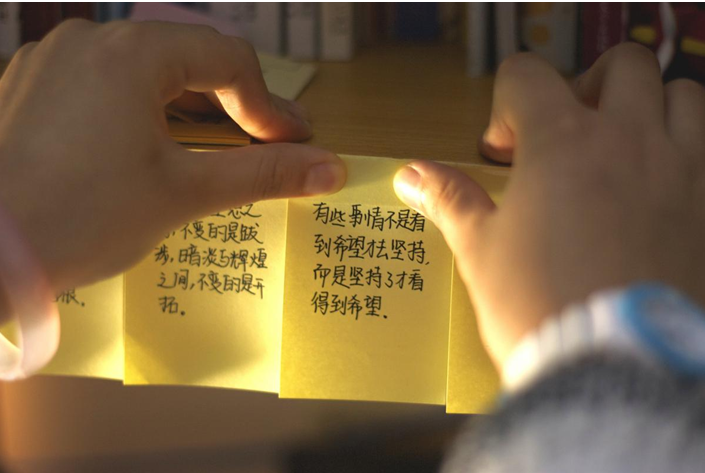 不变的是跋
涉,暗淡与辉煌
之间,不变的是开
拓。
有些事情不是看
到希望才去坚持,
而是坚持了才看
得到希望。